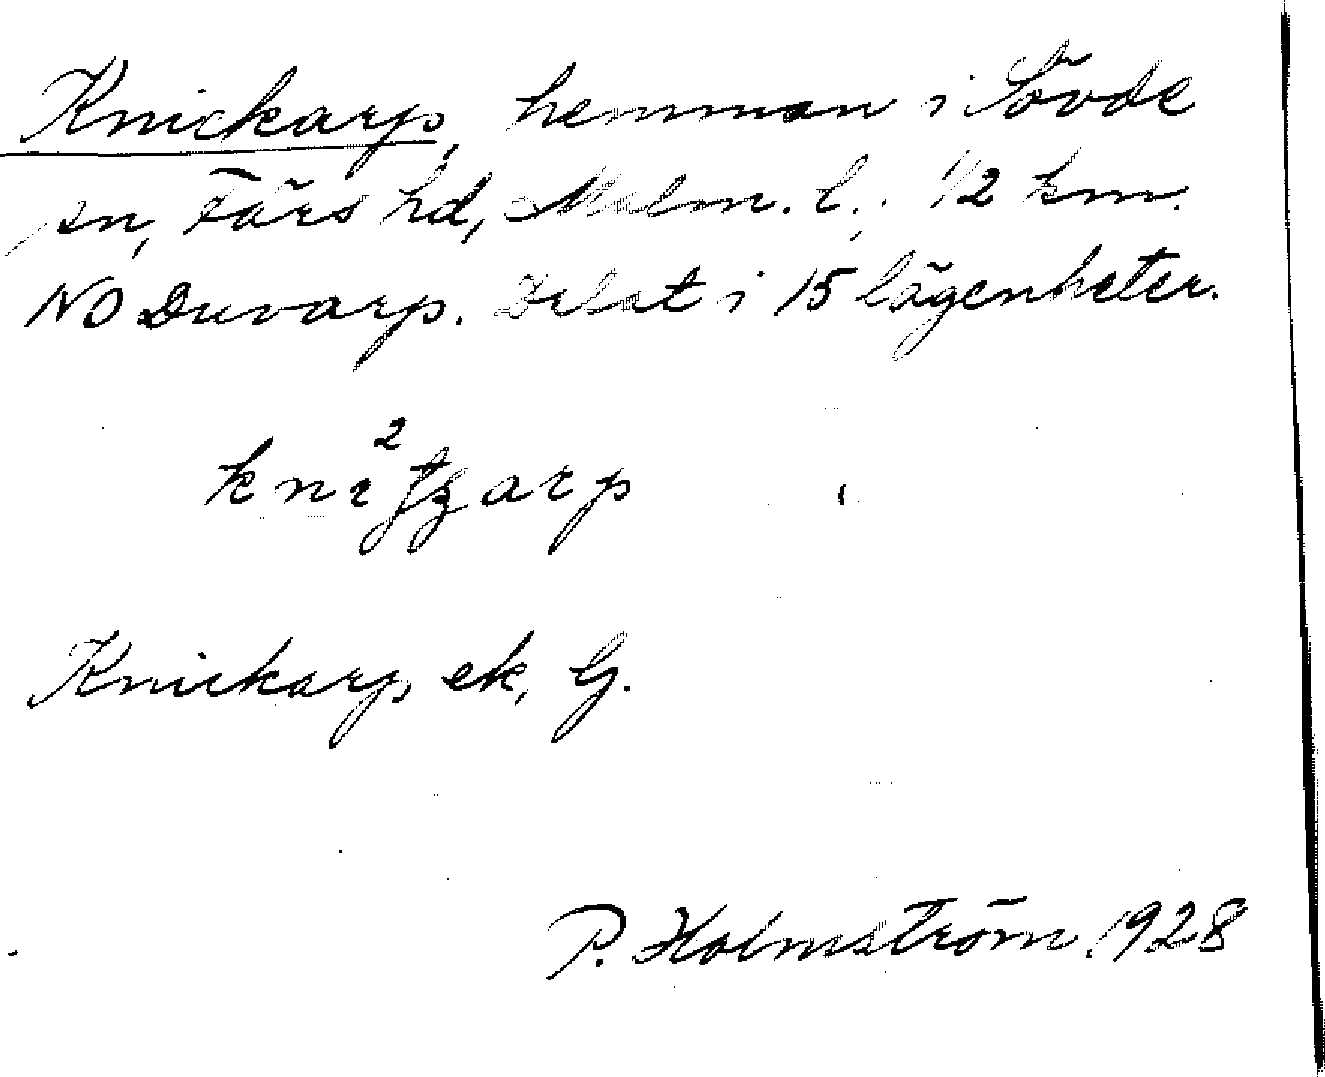 Knickarp, hemman i Sövde
sn, Färs hd, Malm. l.; 1/2 km.
NO Duvarp. Delat i 15 lägenheter.
Knickarp ek, G.
P. Holmström, 1928